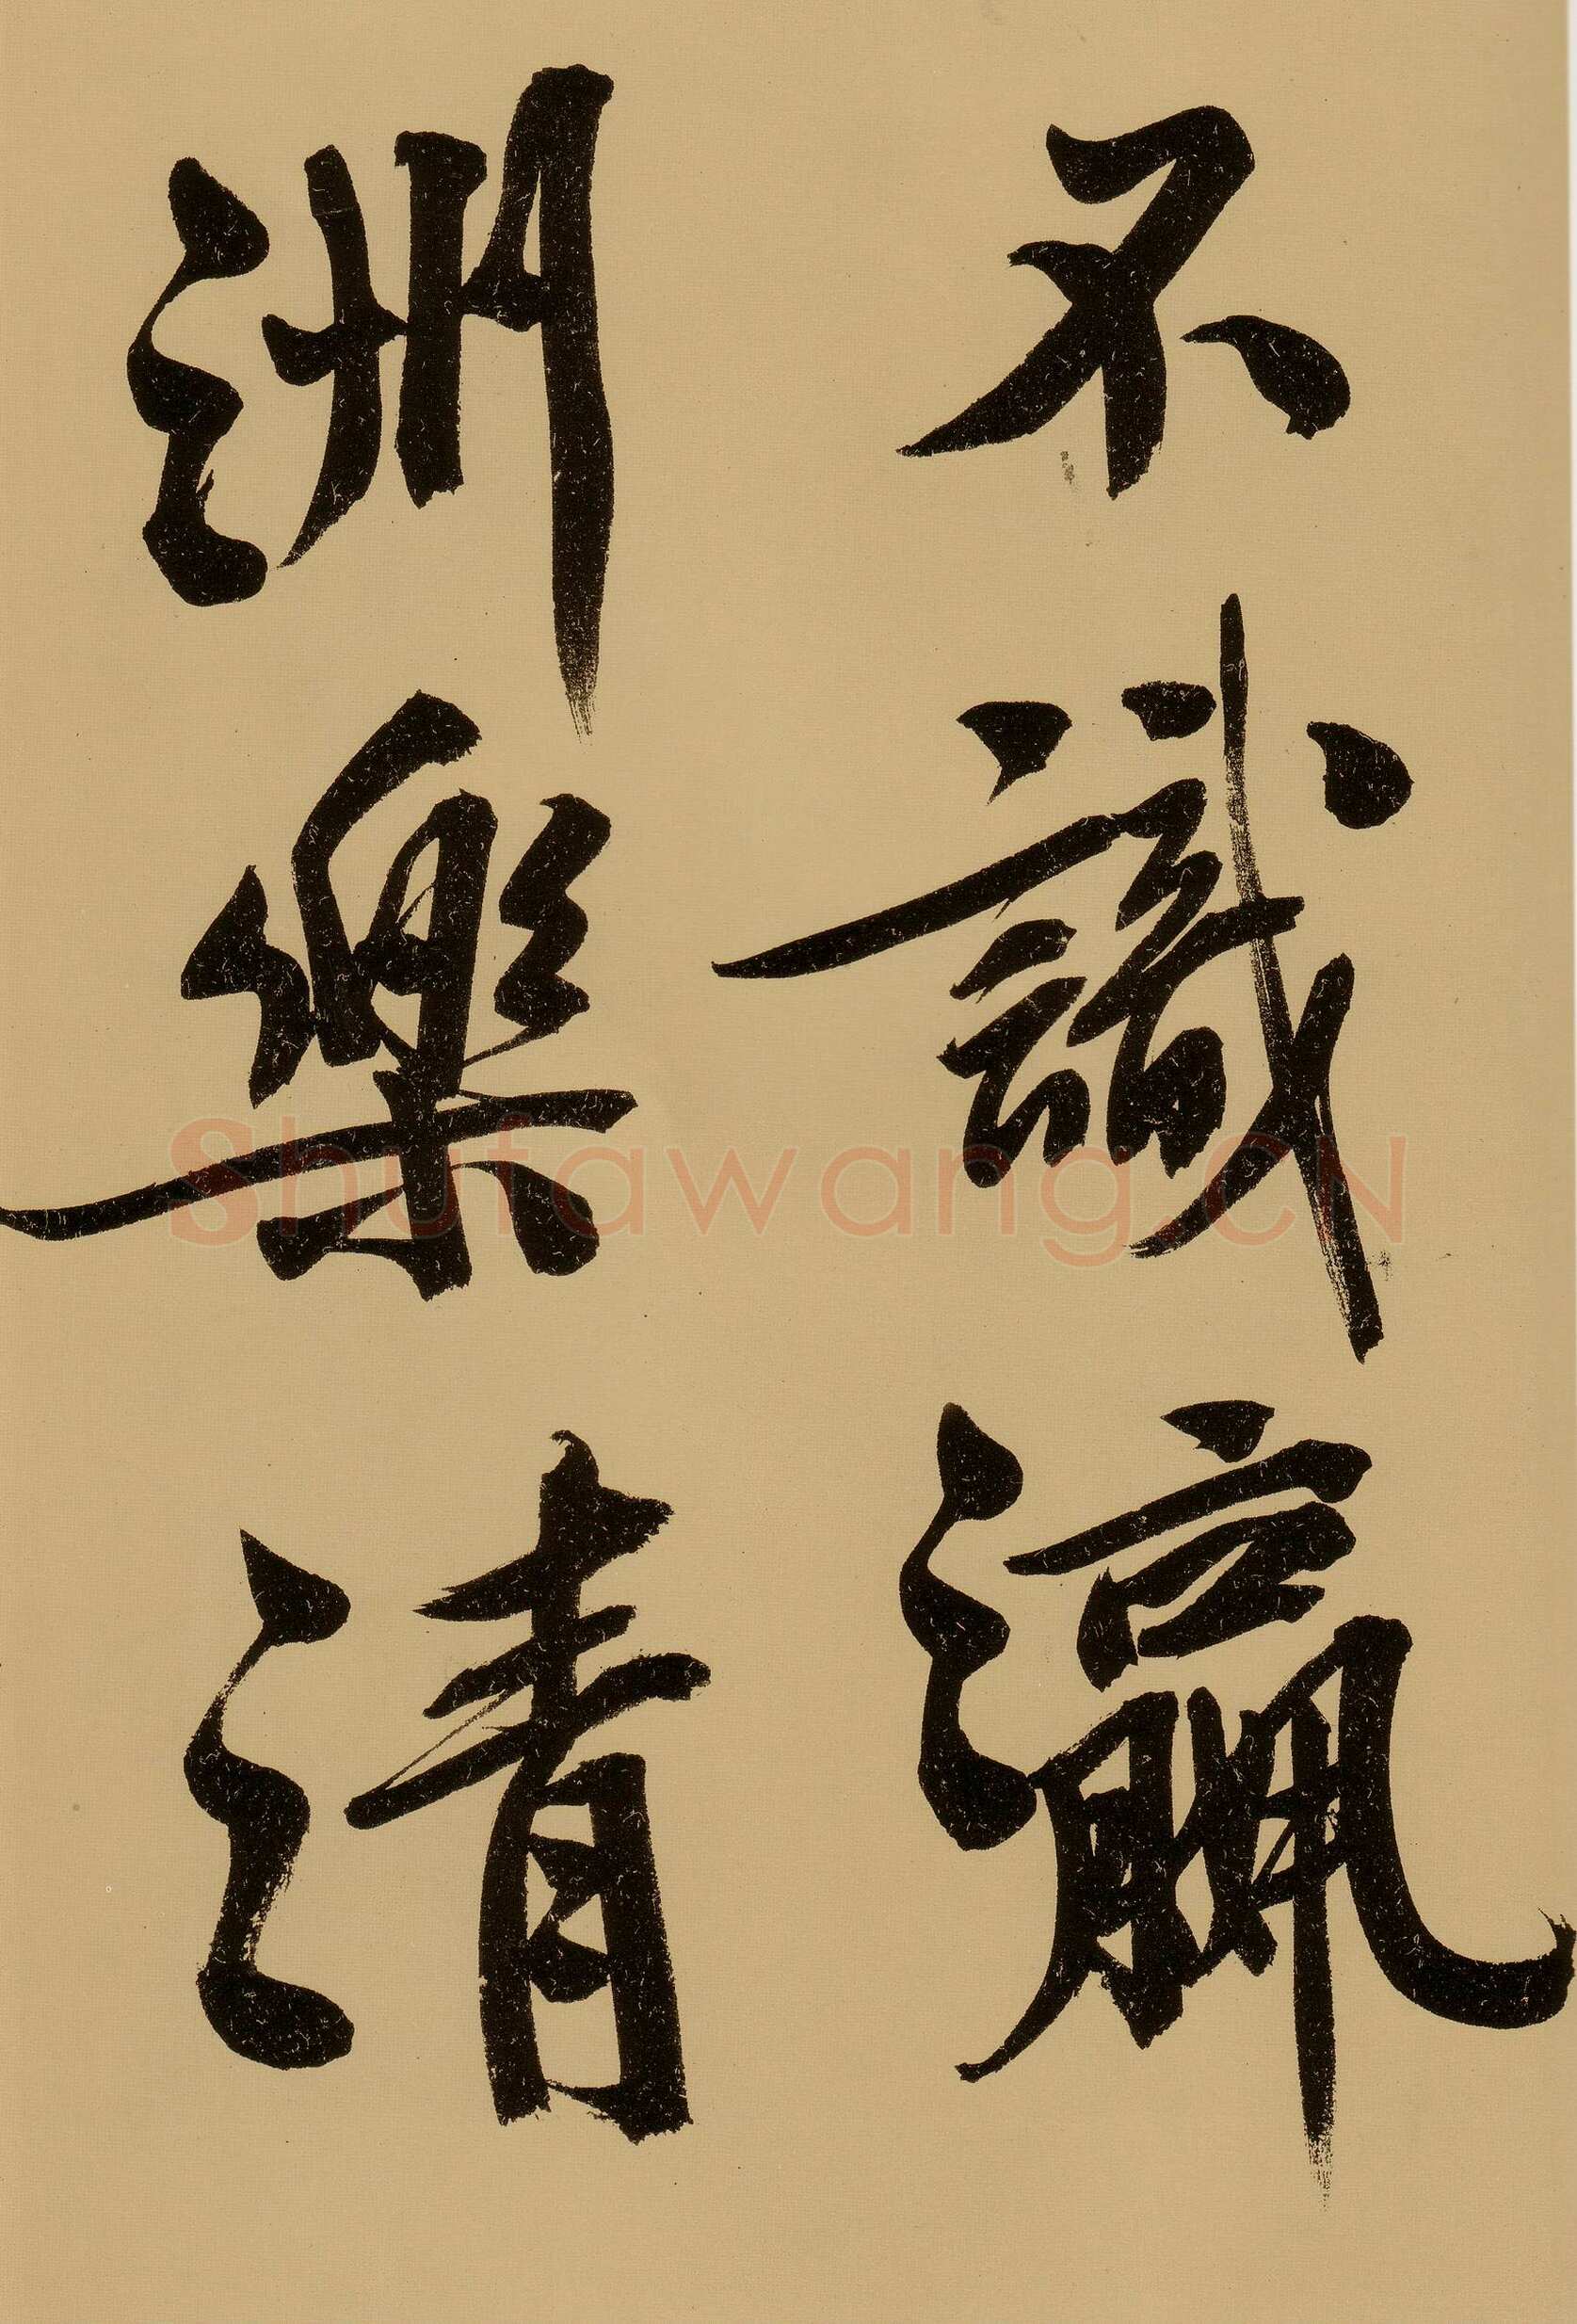 不識瀛
洲樂清
Shufawang.CN